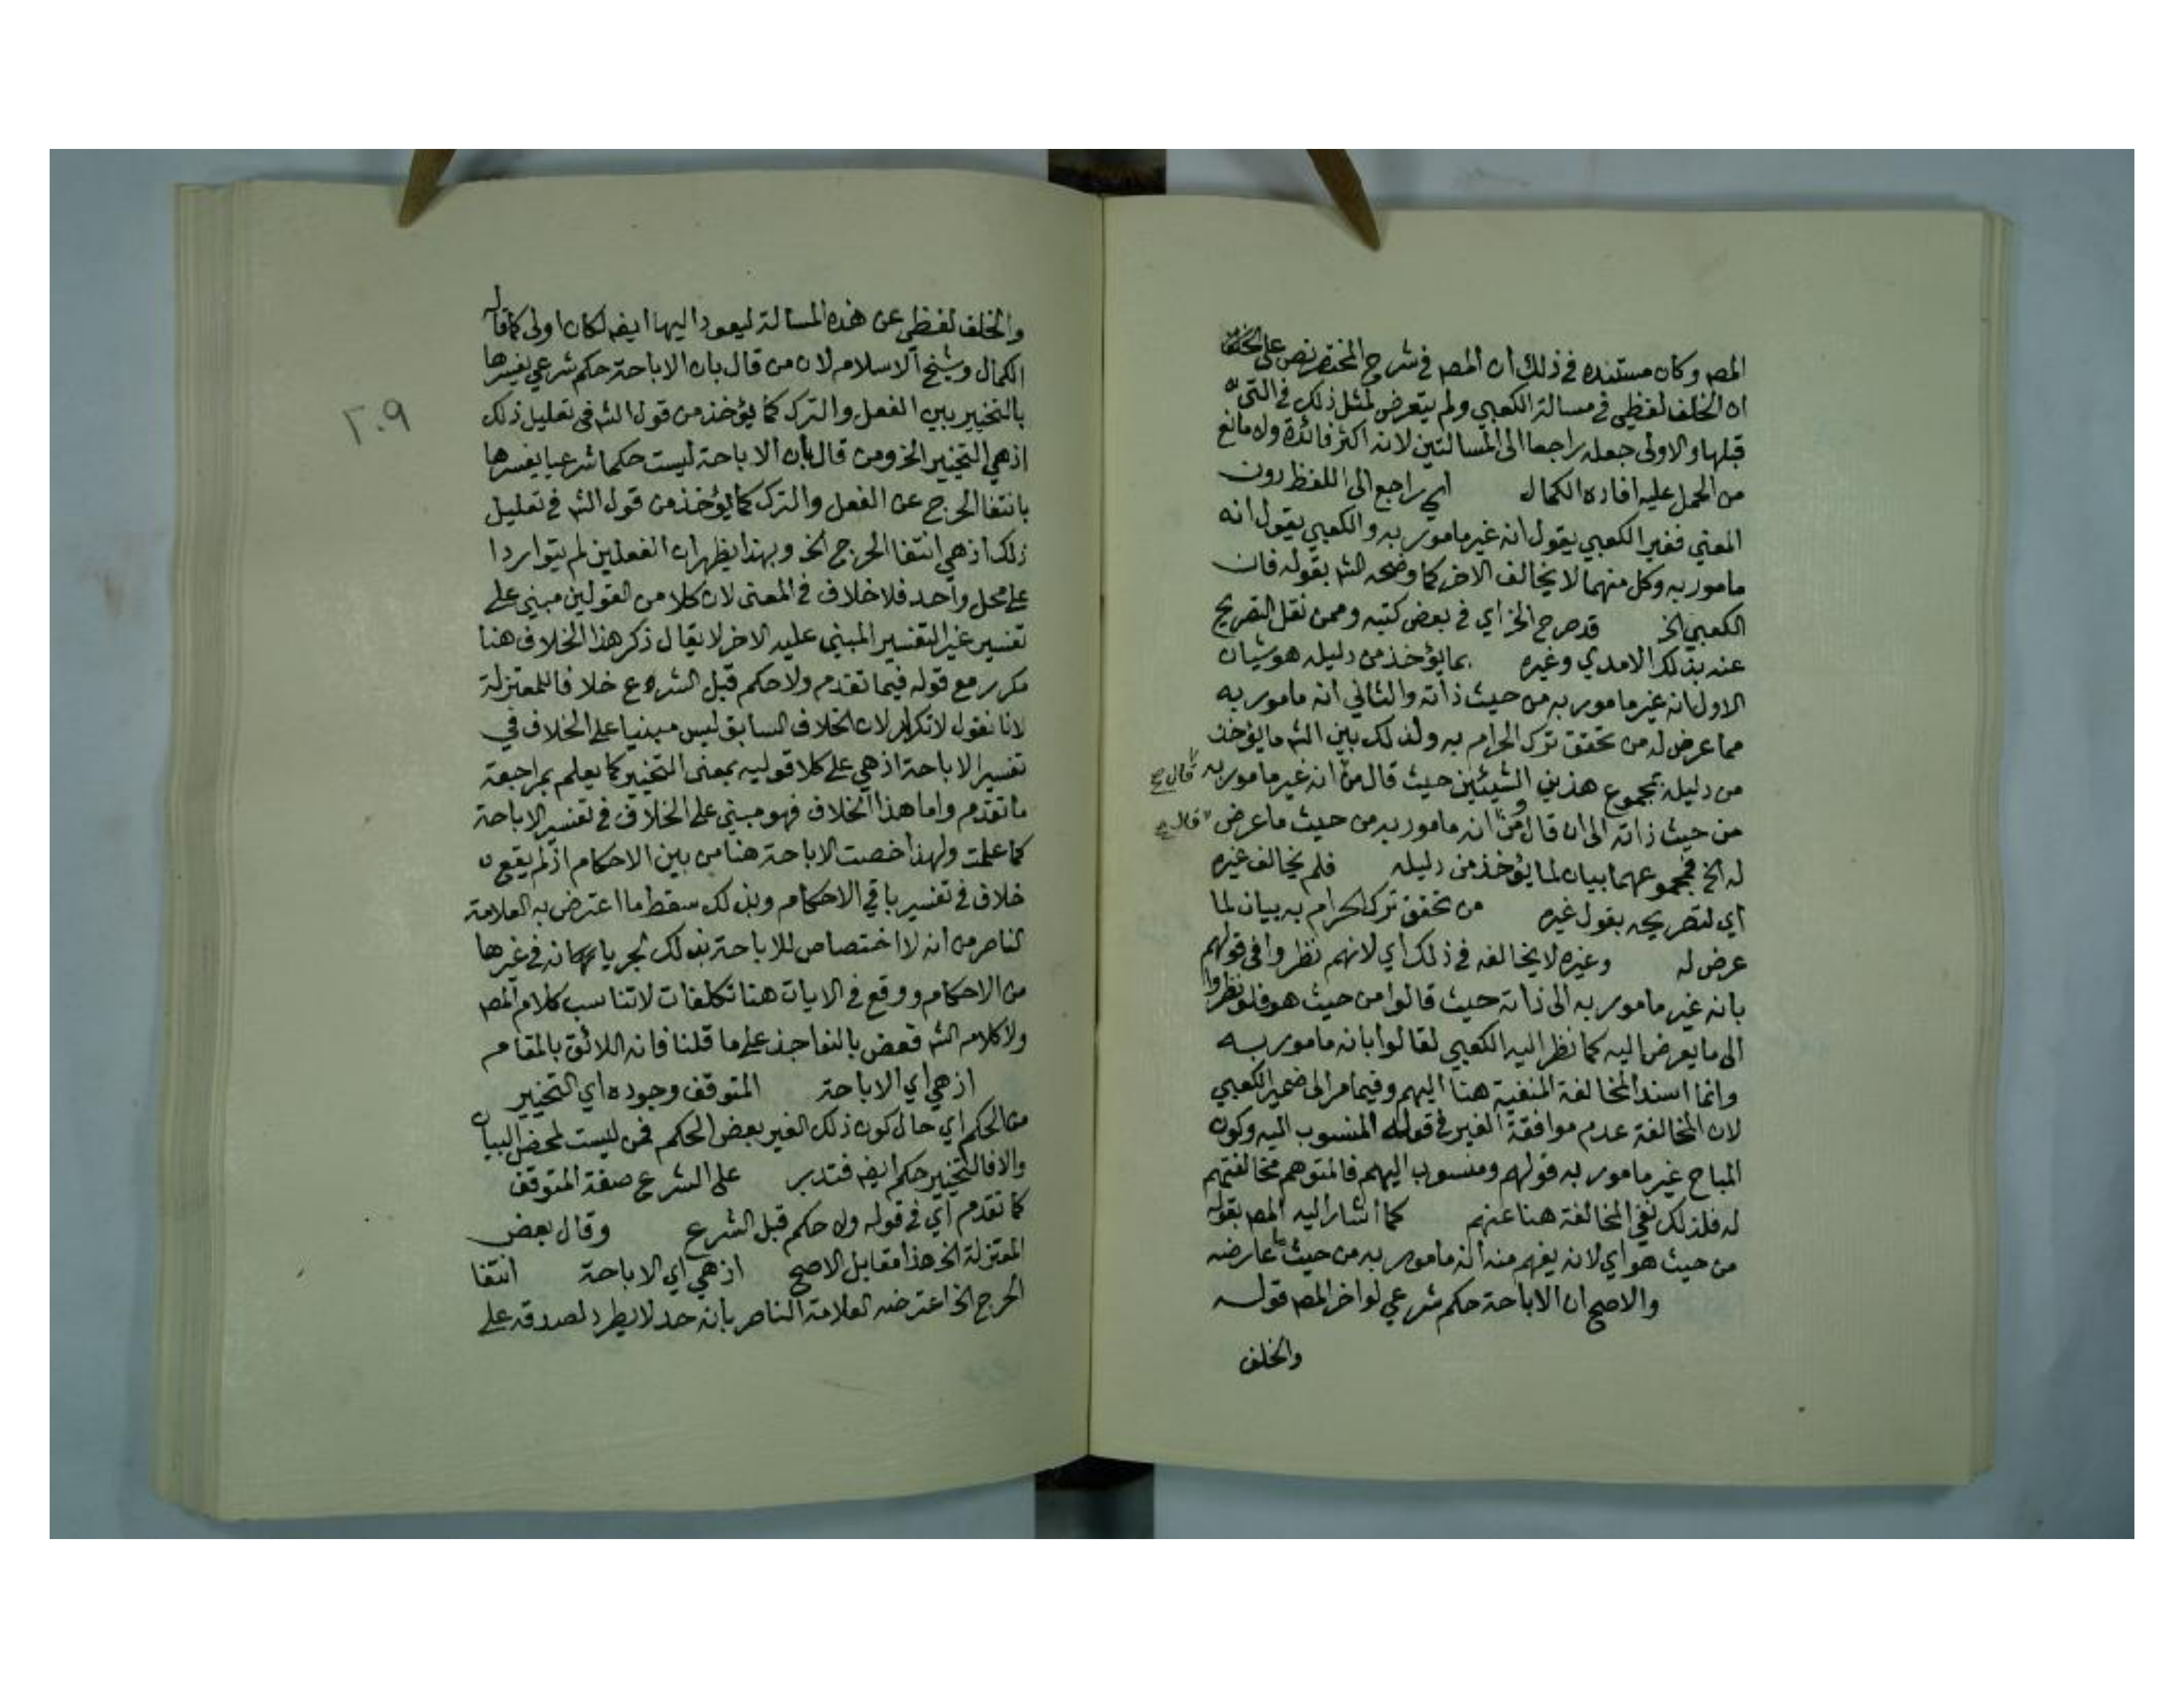 المصـ وكان مستنده في ذلك ان المصـ في شرح المختصر نص على
ان الخلف لفظي في مسالة الكعبي ولم يتعرض لمثل ذلك في التي
قبلها والاولى جعله راجعا الى المسالتين لانه اكثر فائدة ولا مانع
من الحمل عليه افاده الكمال اي راجع الى اللفظ دون
المعني فغير الكعبي يقول انه غير مامور به والكعبي يقول انه
مامور به وكل منهما لا يخالف الاخر كما وضحه الشـ بقوله فان
الكعبي الخ قد صرح الخ اي في بعض كتبه وممن نقل التصريح
عنه بذلك الامدي وغيره بما يؤخذ من دليله هو شيان
الاول انه غير مامور به من حيث ذاته والثاني انه مامور به
مما عرض له من تحقق ترك الحرام به ولذلك بين الشـ ما يؤخذ
من دليله بمجموع هذين الشيئين حيث قال من انه غير مامور به
من حيث ذاته الى ان قال ومن انه مامور به من حيث ما عرض
له الخ فمجموعهما بيان لما يؤخذ من دليله فلم يخالف غيره
اي لتصريحه بقول غيره من تحقق ترك الحرام به بيان لما
عرض له وغيره لا يخالفه في ذلك اي لانهم نظروا في قولهم
بانه غير مامور به الى ذاته حيث قالوا من حيث هو فلو نظروا
الى ما يعرض اليه كما نظر اليه الكعبي لقالوا بانه مامور به
وانما اسند المخالفة المنفية هنا اليهم وفيما مر الى ضمير الكعبي
لان المخالفة عدم موافقة الغير في قوله المنسوب اليه وكون
المباح غير مامور به قولهم ومنسوب اليهم فالمتوهم مخالفتهم
له فلذلك نفى المخالفة هنا عنهم كما اشار اليه المصـ بقوله
من حيث هو اي لانه يفهم منه انه مامور به من حيث ما عارضه
والاصح ان الاباحة حكم شرعي لو اخر المصـ قوله
والخلف
قال صح
قال صح
والخلف لفظي عن هذه المسالة ليعود اليها ايضـ لكان اولى كما قاله
الكمال وشيخ الاسلام لان من قال بان الاباحة حكم شرعي يفسرها
بالتخيير بين الفعل والترك كما يؤخذ من قول الشـ في تعليل ذلك
اذ هي التخيير الخ ومن قال بان الاباحة ليست حكما شرعيا يفسرها
بانتفا الحرج عن الفعل والترك كما يؤخذ من قول الشـ في تعليل
ذلك اذ هي انتفا الحرج الخ وبهذا يظهر ان الفعلين لم يتواردا
على محل واحد فلا خلاف في المعنى لان كلا من القولين مبني على
تفسير غير التفسير المبني عليه الاخر لا يقال ذكر هذا الخلاف هنا
مكرر مع قوله فيما تقدم ولا حكم قبل الشرع خلافا للمعتزلة
لانا نقول لا تكرار لان الخلاف السابق ليس مبنيا على الخلاف في
تفسير الاباحة اذ هي على كلا قوليه بمعنى التخيير كما يعلم بمراجعة
ما تقدم واما هذا الخلاف فهو مبني على الخلاف في تفسير الاباحة
كما علمت ولهذا خصت الاباحة هنا من بين الاحكام اذ لم يقع
خلاف في تفسير باقي الاحكام وبذلك سقط ما اعترض به العلامة
الناصر من انه لا اختصاص للاباحة بذلك لجريانه في غيرها
من الاحكام ووقع في الايات هنا تكلفات لا تناسب كلام المصـ
ولا كلام الشـ فعض بالنواجذ على ما قلنا فانه اللائق بالمقام
اذ هي اي الاباحة المتوقف وجوده اي التخيير
من الحكم اي حال كون ذلك الغير بعض الحكم فمن ليست لمحض البيان
والا فالتخيير حكم ايضـ فتدبر على الشرع صفة المتوقف
كما تقدم اي في قوله ولا حكم قبل الشرع وقال بعض
المعتزلة الخ هذا مقابل الاصح اذ هي اي الاباحة انتفا
الحرج الخ اعترضه العلامة الناصر بانه حد لا يطرد لصدقه على
٢٠٩